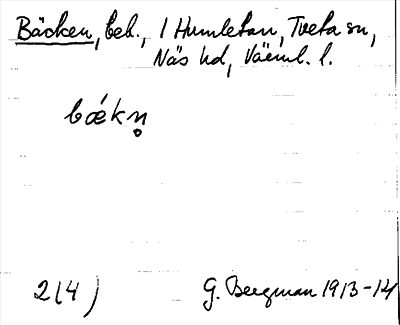 Bäcken, beb., I Humletan, Tveta sn,
Näs hd, Värml. l.
bǽkn̥
2(4)
G. Bergman 1913-14